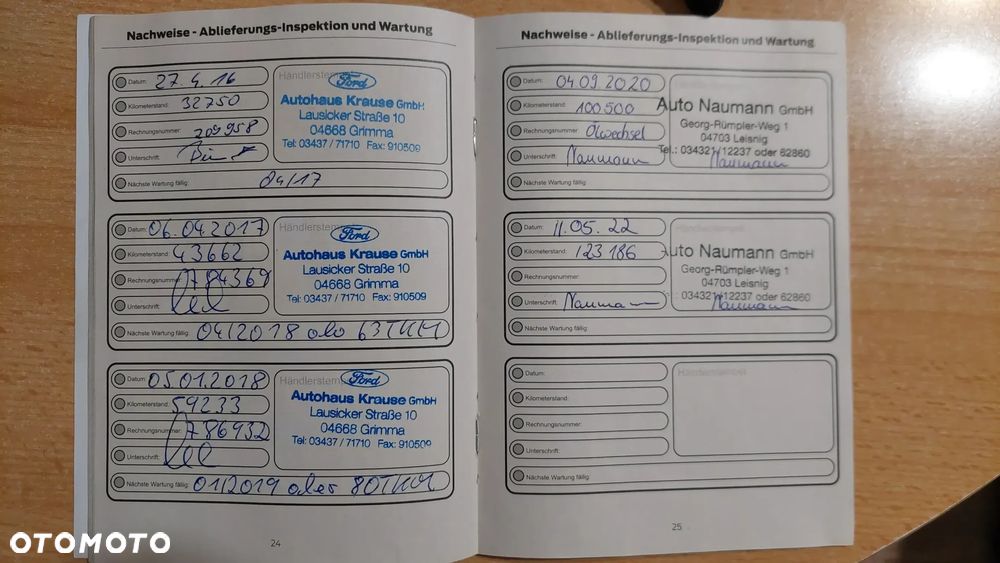 Nachweise - Ablieferungs-Inspektion und Wartung
Datum: 27.4.16
Kilometerstand: 32750
Rechnungsnummer: 209958
Unterschrift:
Nächste Wartung fällig: 04/17
Händlerstempel
Ford
Autohaus Krause GmbH
Lausicker Straße 10
04668 Grimma
Tel: 03437 / 71710 Fax: 910509
Datum: 06.04.2017
Kilometerstand: 43662
Rechnungsnummer: 784369
Unterschrift:
Nächste Wartung fällig: 04/2018 oder 63TKM
Händlerstempel
Ford
Autohaus Krause GmbH
Lausicker Straße 10
04668 Grimma
Tel: 03437 / 71710 Fax: 910509
Datum: 05.01.2018
Kilometerstand: 59233
Rechnungsnummer: 786932
Unterschrift:
Nächste Wartung fällig: 01/2019 oder 80TKM
Händlerstempel
Ford
Autohaus Krause GmbH
Lausicker Straße 10
04668 Grimma
Tel: 03437 / 71710 Fax: 910509
24
Nachweise - Ablieferungs-Inspektion und Wartung
Datum: 04.09.2020
Kilometerstand: 100500
Rechnungsnummer: Ölwechsel
Unterschrift: Naumann
Nächste Wartung fällig:
Auto Naumann GmbH
Georg-Rümpler-Weg 1
04703 Leisnig
Tel.: 034321/12237 oder 62860
Naumann
Datum: 11.05.22
Kilometerstand: 123186
Rechnungsnummer:
Unterschrift: Naumann
Nächste Wartung fällig:
Händlerstempel
Auto Naumann GmbH
Georg-Rümpler-Weg 1
04703 Leisnig
: 034321/12237 oder 62860
Naumann
Datum:
Kilometerstand:
Rechnungsnummer:
Unterschrift:
Nächste Wartung fällig:
Händlerstempel
25
OTOMOTO